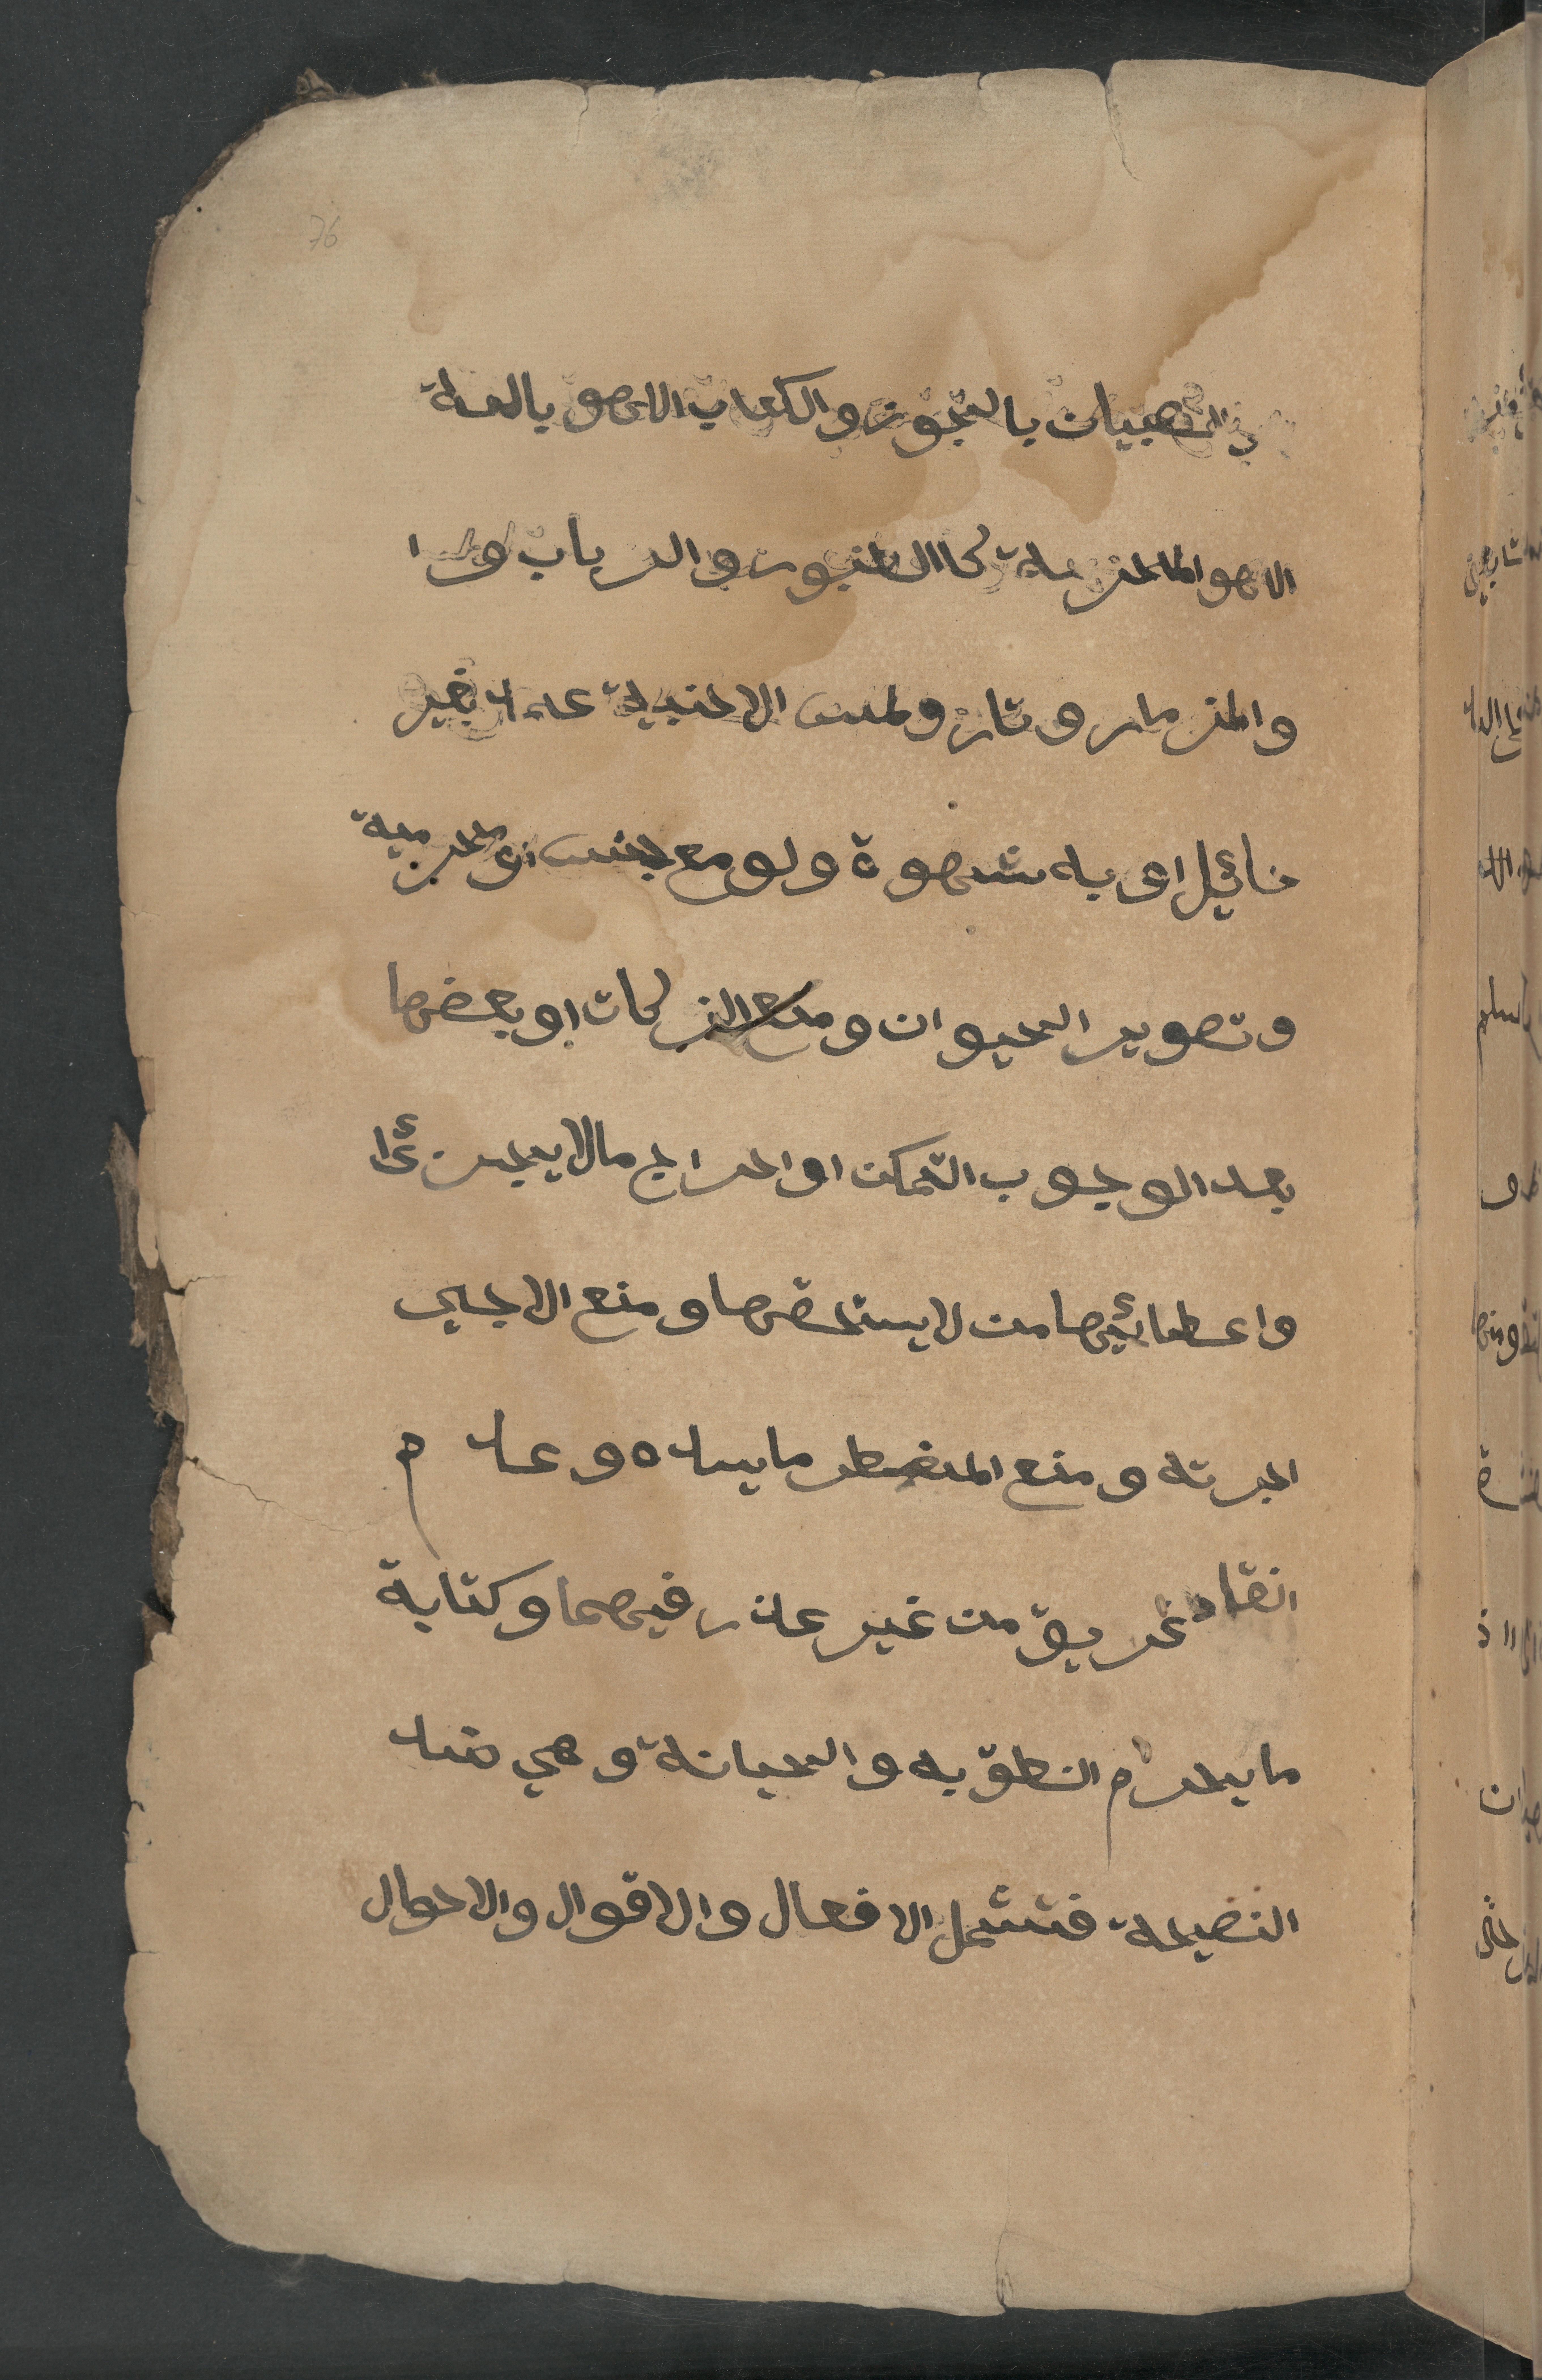 76
الصبيان بالجوز والكعاب اللهو بالعلة
اللهو المحرمة كاالطنبور والرباب و ا
والمزمار وتار ولمس الاجنبية عمدا بغير
حائيل اوى به شهوة ولو مع جنس اومحرمية
وتصوير الحيوان ومنع الزكات او بعضها
بعد الوجوب التمكن او اخراج مالا يجزئ
واعطائيها من لا يستحقها ومنع الاجير
اجرته ومنع المضطر ما يسده وعدم
انقاد غريق من غير عذر فيهما وكتابة
ما يحرم النطق به والخيانة وهي ضد
النصيحة فتشمل الافعال والاقوال والاحوال